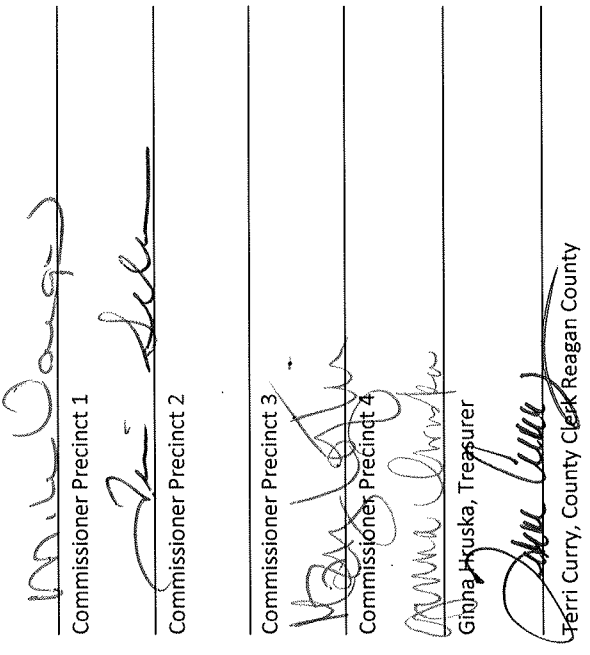 Commissioner Precinct 1
Commissioner Precinct 2
Commissioner Precinct 3
Commissioner Precinct 4
Ginna Hruska
Ginna Hruska, Treasurer
Terri Curry
Terri Curry, County Clerk Reagan County